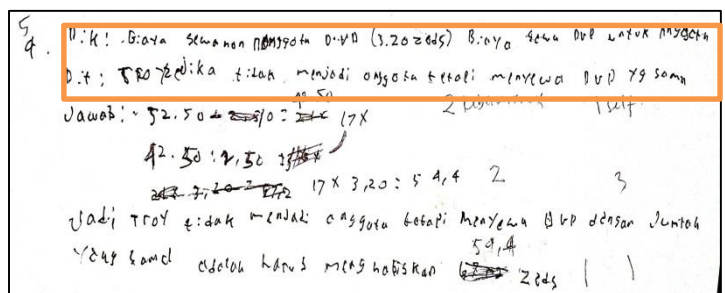 5
4. Dik : Biaya sewa non anggota DVD (3.20 zeds) Biaya sewa DVD untuk anggota
Dit : TROY jika tidak menjadi anggota tetapi menyewa DVD yg sama
Jawab : 52.50 - 10 = 42.50 17x
42.50 : 2,50
17 x 3,20 : 54,4 2 3
Jadi TROY tidak menjadi anggota tetapi menyewa DVD dengan Jumlah
Yang sama adalah harus menghabiskan 54,4 zeds